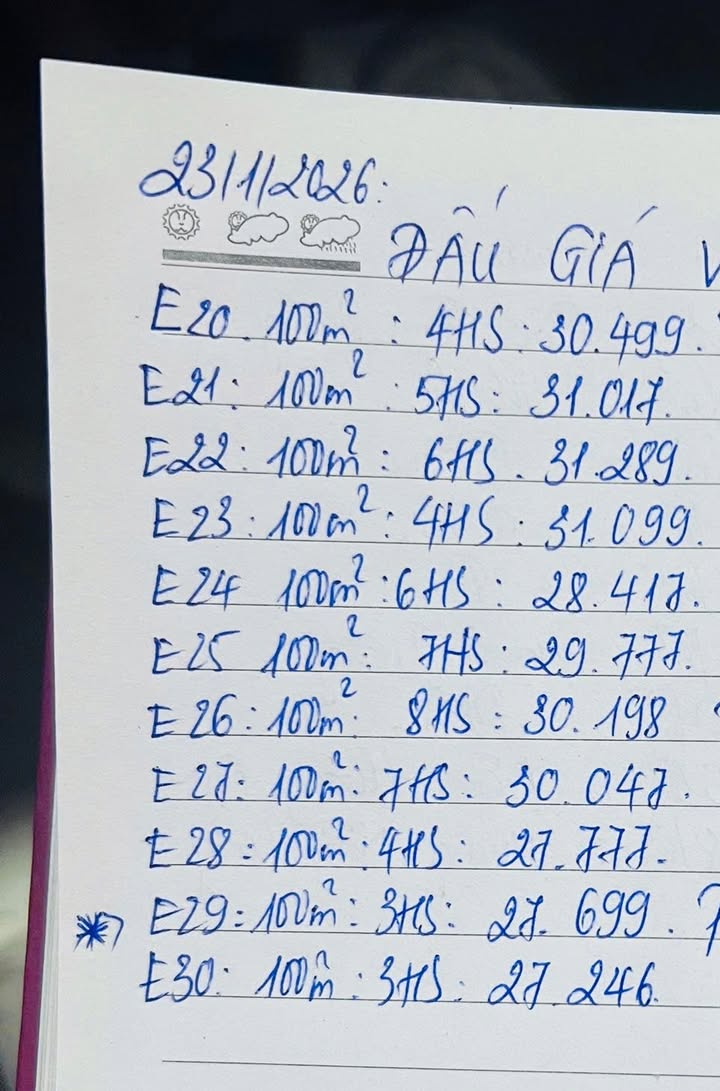 23/1/2026:
ĐẤU GIÁ
E20. 100m² : 4HS : 30.499.
E21: 100m² : 5HS: 31.017.
E22: 100m² : 6HS. 31.289.
E23: 100m² : 4HS : 31.099.
E24 100m² : 6HS : 28.417.
E25 100m²: 7HS : 29.777.
E26: 100m²: 8HS : 30.198
E27: 100m²: 7HS: 30.047.
E28: 100m²: 4HS: 27.777.
* E29: 100m²: 3HS: 27.699.
E30: 100m²: 3HS: 27.246.